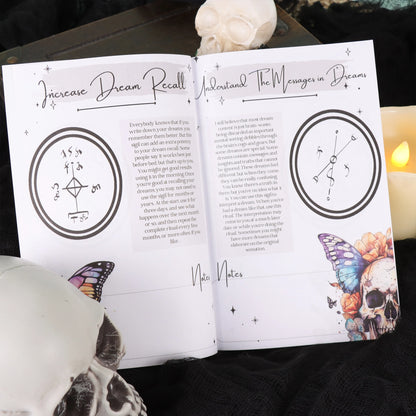 Increase Dream Recall
Everybody knows that if you
write down your dreams you
remember them better. But this
sigil can add an extra potency
to your dream recall. Some
people say it works best just
before bed, but that's up to you.
You might get good results
using it in the morning. Once
you're good at recalling your
dreams, you may not need to
use the sigil for months or
years. At the start use it for
three days, and see what
happens over the next month
or so, and then repeat the
complete ritual every few
months, or more often, if you
like.
Notes
Understand The Messages in Dreams
I still believe that most dream
content is just brain-waste
being discarded as important
mental sorting bobbles through
the brain's rags and gears. But
some dreams are special. Some
dreams contain messages and
insights and truths that cannot
be ignored. These dreams are
different, but by nature they
can be strikingly confusing.
You know there's a truth in
them but you've no idea what it
is. You can use this sigil to
interpret a dream. When you've
had a dream like that, use this
ritual. The interpretation may
come to you at a much later
date or while you're doing the
ritual. Sometimes you might
have more dreams that
elaborate on the original
sensation.
Notes